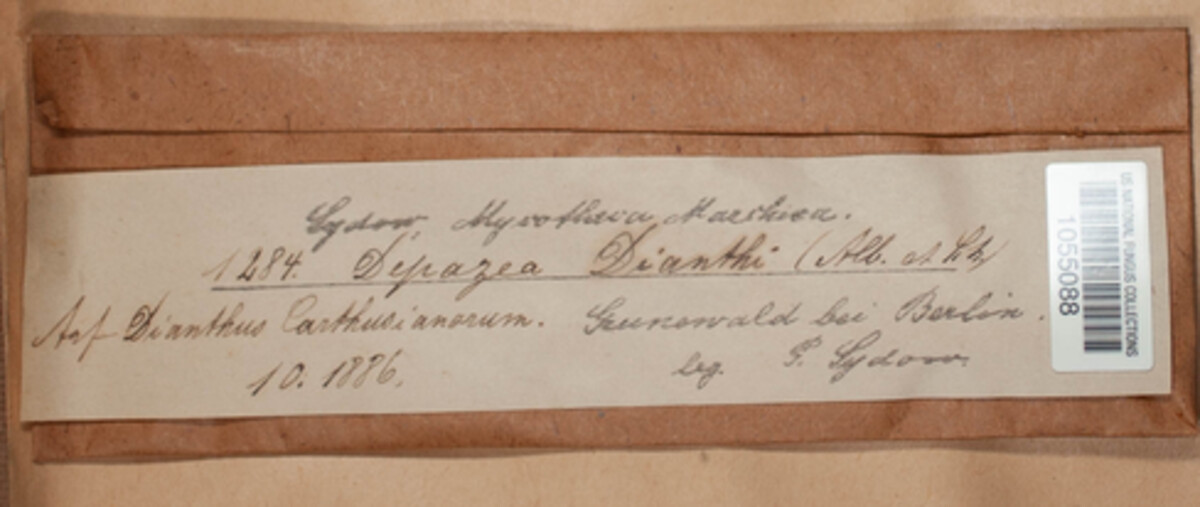 Sydow, Mycotheca Marchica.
1284. Depazea Dianthi (Alb. et Sch)
Auf Dianthus Carthusianorum. Grunewald bei Berlin.
10. 1886. leg. P. Sydow.
US NATIONAL FUNGUS COLLECTIONS
1055088